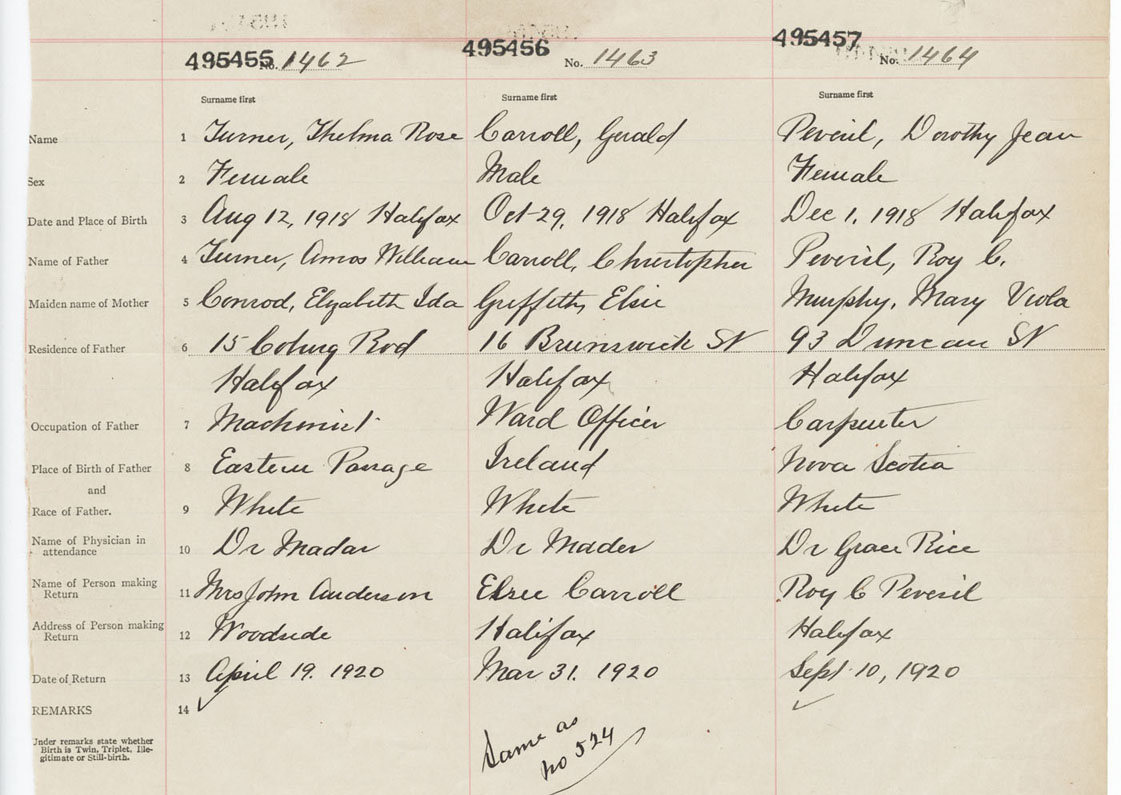 495455 No. 1462 495456 No. 1463 495457 No. 1464
Surname first Surname first Surname first
Name 1 Turner, Thelma Rose Carroll, Gerald Peveril, Dorothy Jean
Sex 2 Female Male Female
Date and Place of Birth 3 Aug 12, 1918 Halifax Oct 29, 1918 Halifax Dec 1, 1918 Halifax
Name of Father 4 Turner, Amos William Carroll, Christopher Peveril, Roy C.
Maiden name of Mother 5 Conrod, Elizabeth Ida Griffith, Elsie Murphy, Mary Viola
Residence of Father 6 15 Coburg Rod 16 Brunswick St 93 Duncan St
Halifax Halifax Halifax
Occupation of Father 7 Machinist Ward Officer Carpenter
Place of Birth of Father 8 Eastern Passage Ireland Nova Scotia
and
Race of Father. 9 White White White
Name of Physician in
attendance 10 Dr Madar Dr Mader Dr Grace Rice
Name of Person making
Return 11 Mrs John Anderson Elsie Carroll Roy C Peveril
Address of Person making
Return 12 Woodside Halifax Halifax
Date of Return 13 April 19. 1920 Mar 31. 1920 Sept 10, 1920
REMARKS 14
Same as
no 524
Under remarks state whether
Birth is Twin, Triplet, Ille-
gitimate or Still-birth.